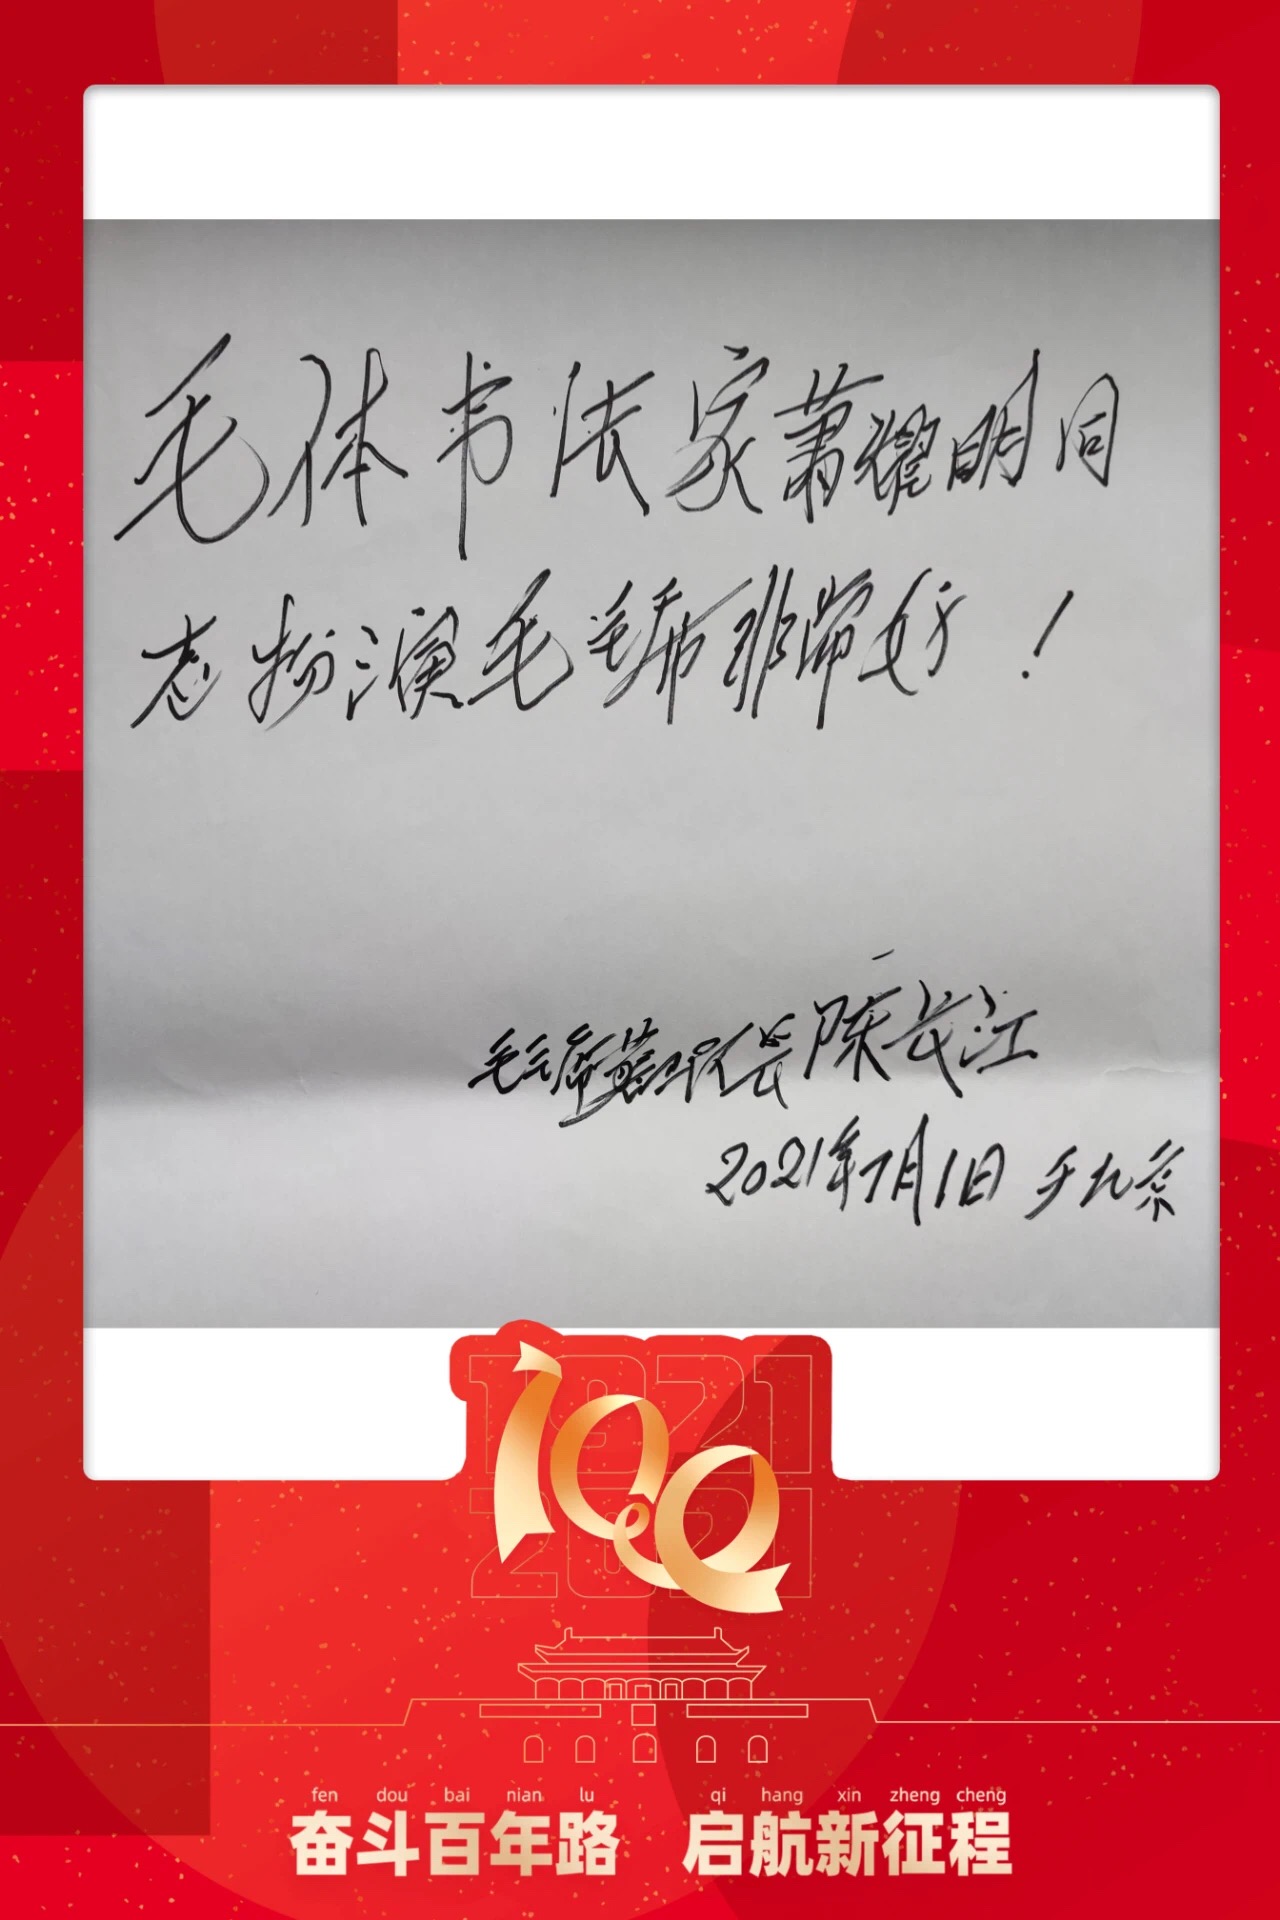 毛体书法家萧耀明同
志扮演毛主席非常好！
毛主席警卫长陈长江
2021年7月1日 于北京
1921
100
2021
fen dou bai nian lu qi hang xin zheng cheng
奋斗百年路 启航新征程